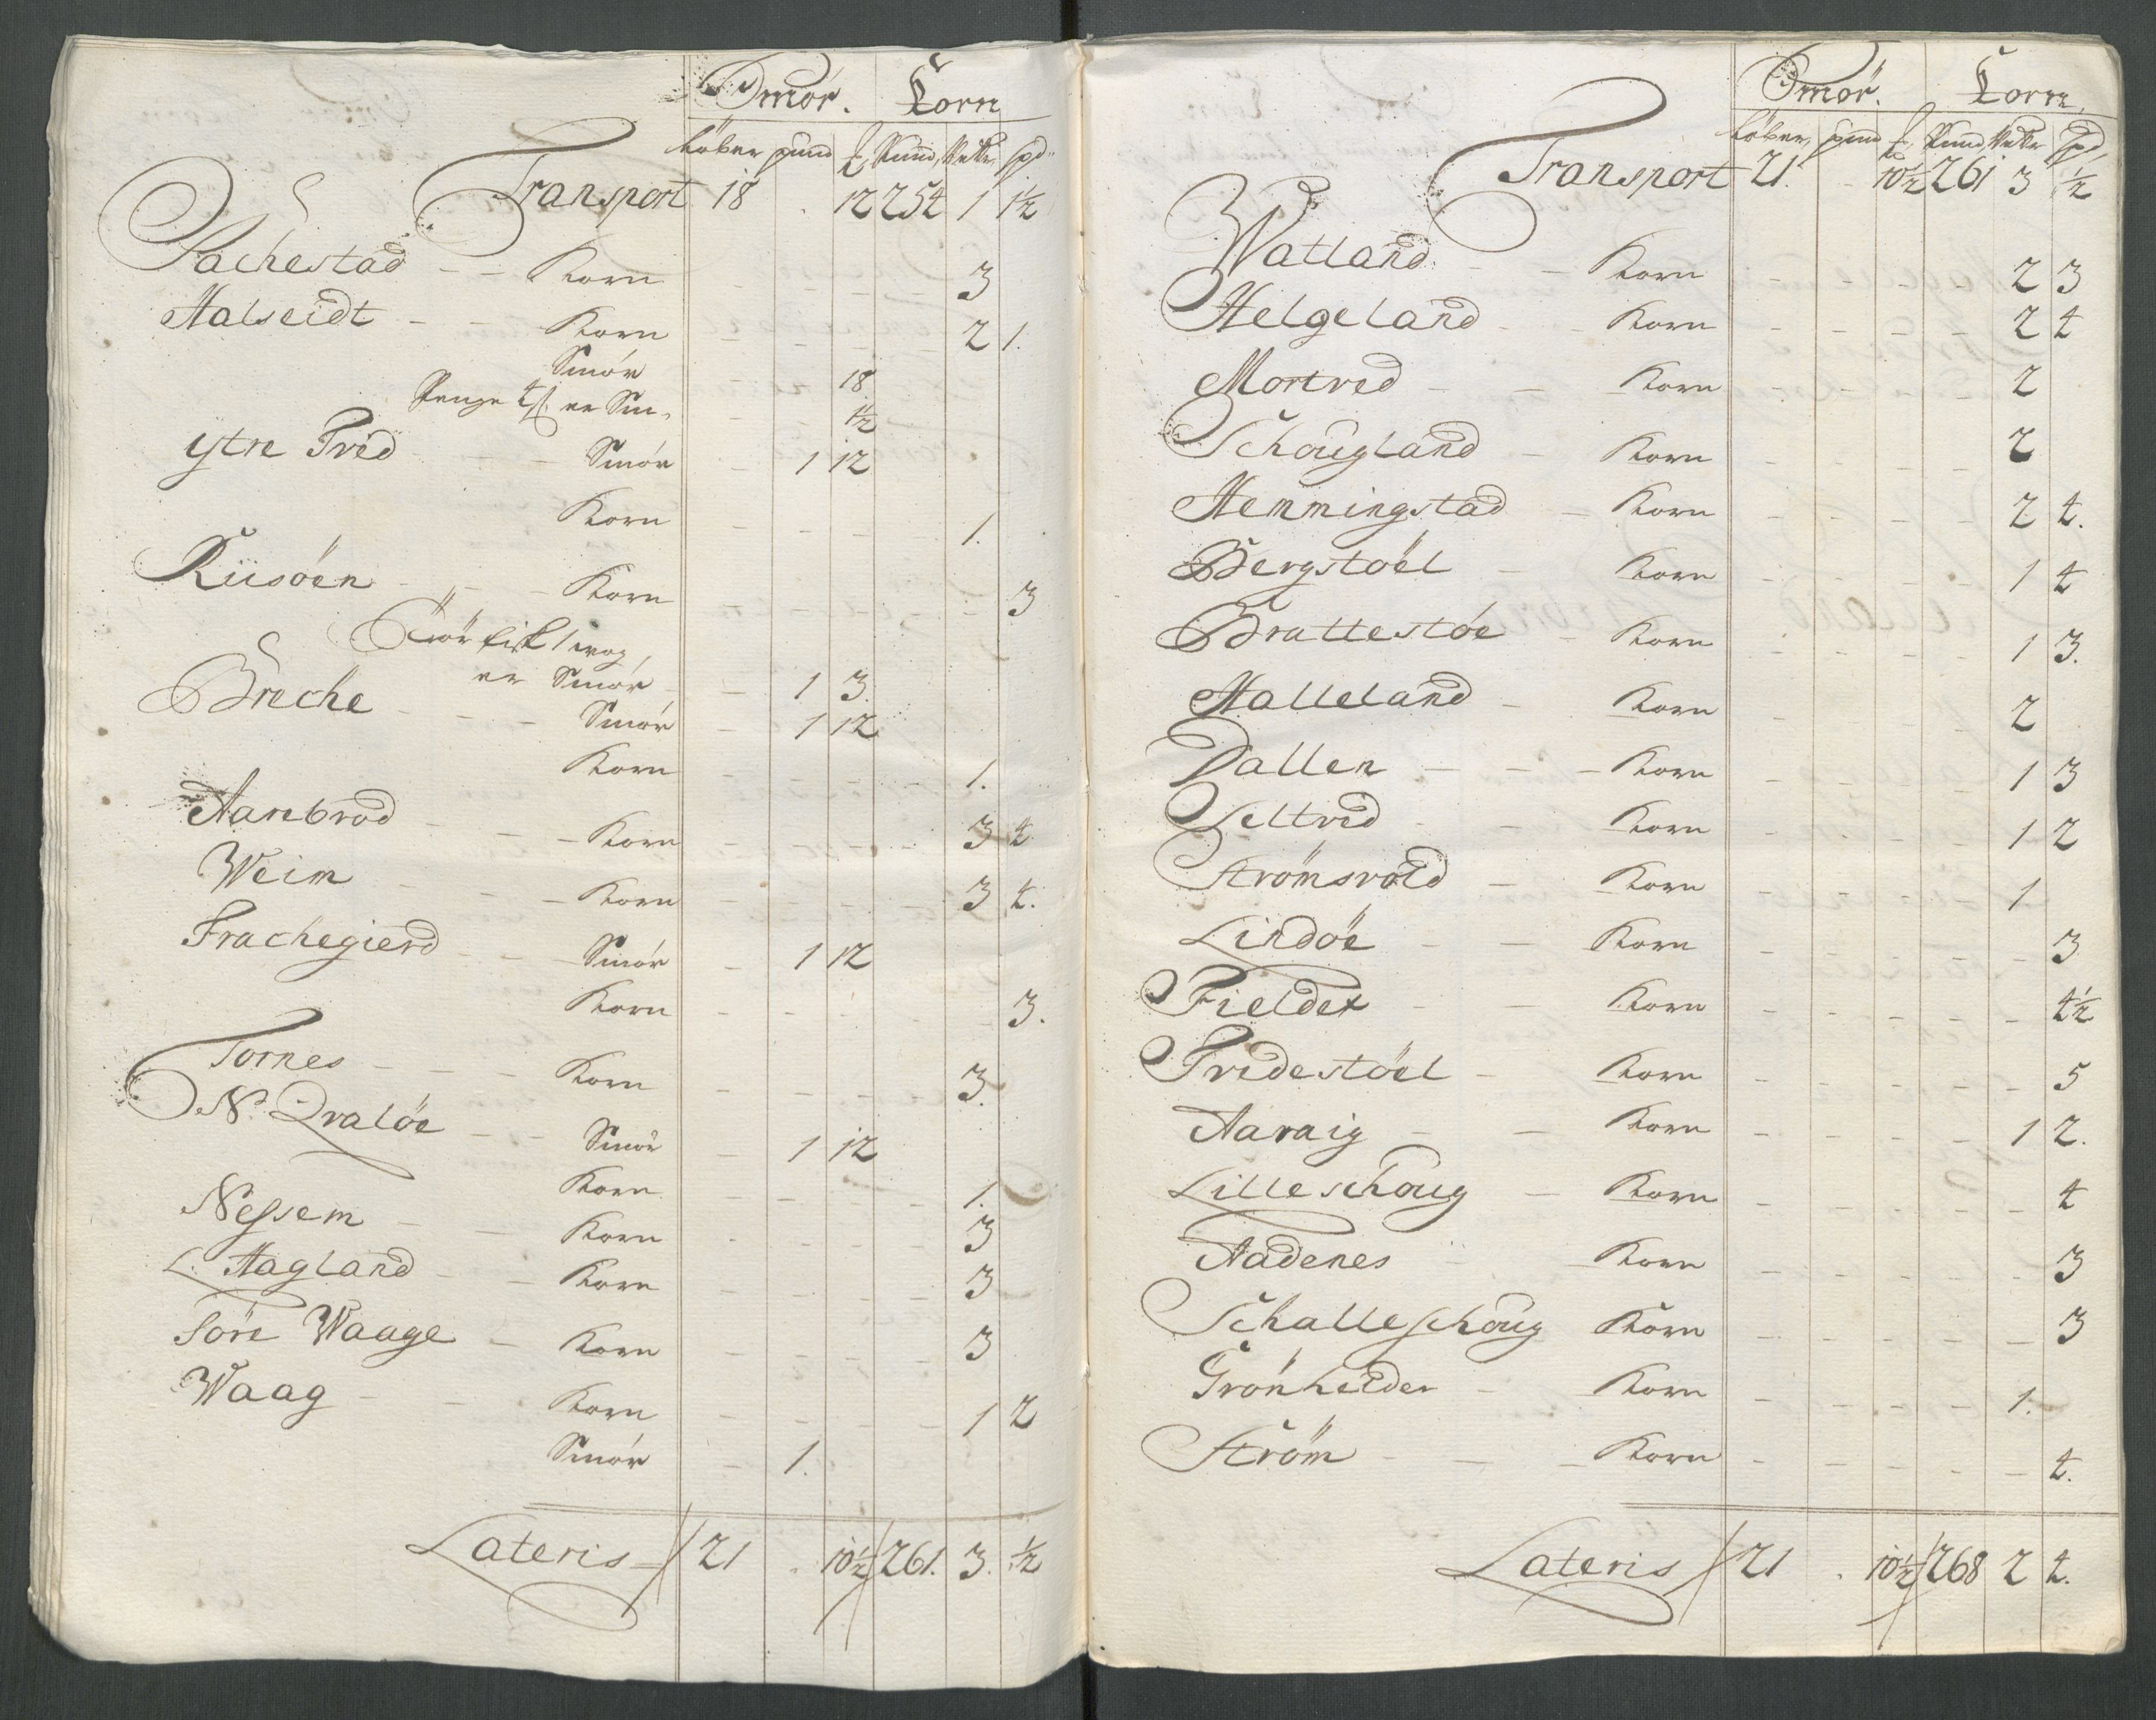 Smör. Korn
Löber pund ℔ Pund Vetter spd
Transport 18 . 12 254 1 1½
Rachestad - - Korn - - - - 3
Halseidt - - Korn - - - - 2 1.
Smör - - 18
Penge 4 ß er Sm. - - 1½
ytre Tved - - Smör - 1 12
Korn - - - - 1.
Riisöen - - Korn - - - - - 3
Tör fisk 1 wog,
er Smör - 1 3.
Breche - - - Smör - 1 12
Korn - - - - 1.
Aanbrod - - - Korn - - - - 3 4
Weim - - - Korn - - - - 3 4.
Frachegierd - - - Smör - 1 12
Korn - - - - - 3.
Tornes - - - Korn - - - - 3.
N. Qvaløe - - Smör - 1 12
Korn - - - - 1.
Nessem - - Korn - - - - 3
L. Hagland - - Korn - - - - 3
Söre Waage - Korn - - - - 3
Waag - - Korn - - - - 1 2
Smör - 1.
Lateris - 21 . 10½ 261. 3. ½
Smör. Korn,
Löber, pund ℔ Pund, Vetter Spd
Transport 21. - 10½ 261 3 ½
Watland. - - Korn - - - - - 2 3
Helgeland - - Korn - - - - - 2 4
Mortved - - Korn - - - - - 2
Schougland - Korn - - - - - 2
Hemmingstad - Korn - - - - - 2 4.
Bergstöel - Korn - - - - - 1 4
Brattestöe - Korn - - - - - 1 3.
Halleland - Korn - - - - - 2
Dallen - - - Korn - - - - - 1 3
Seltved - - Korn - - - - - 1 2
Strömsvold - Korn - - - - - 1
Lindöe - - Korn - - - - - - 3
Fieldet - - Korn - - - - - - 4½
Tvedestöel - Korn - - - - - - 5
Aaraig - - Korn - - - - - 1 2.
Lilleschoug - Korn - - - - - - 4
Aadenes - Korn - - - - - - 3
Schalleschoug Korn - - - - - - 3
Grönhelder - Korn - - - - - 1.
Ström - - - Korn - - - - - - 4.
Lateris 21 . 10½ 268 2 4.